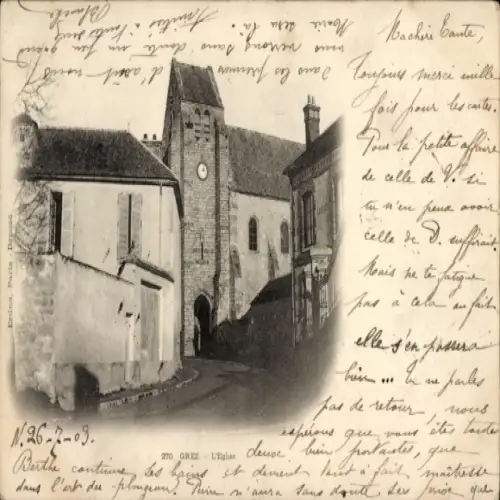 Ma chère Tante,
Toujours merci mille
fois pour les cartes.
Pour la petite
de celle de V. si
tu n'en peux avoir
celle de D. suffirait.
Mais ne te fatigue
pas à cela au fait
elle s'en passera
bien... Tu ne parles
pas de retour, nous
espérons que vous êtes toutes
deux bien portantes, que
Berthe continue ses bains et devient tout à fait maîtresse
dans l'art du plongeon. n'aura sans doute que
Dans les premiers d'août nous
nous verrons sans doute
Marie sera là.
Amitiés à toutes
Blanche
N. 26-7-03.
270 GREZ. - L'Eglise